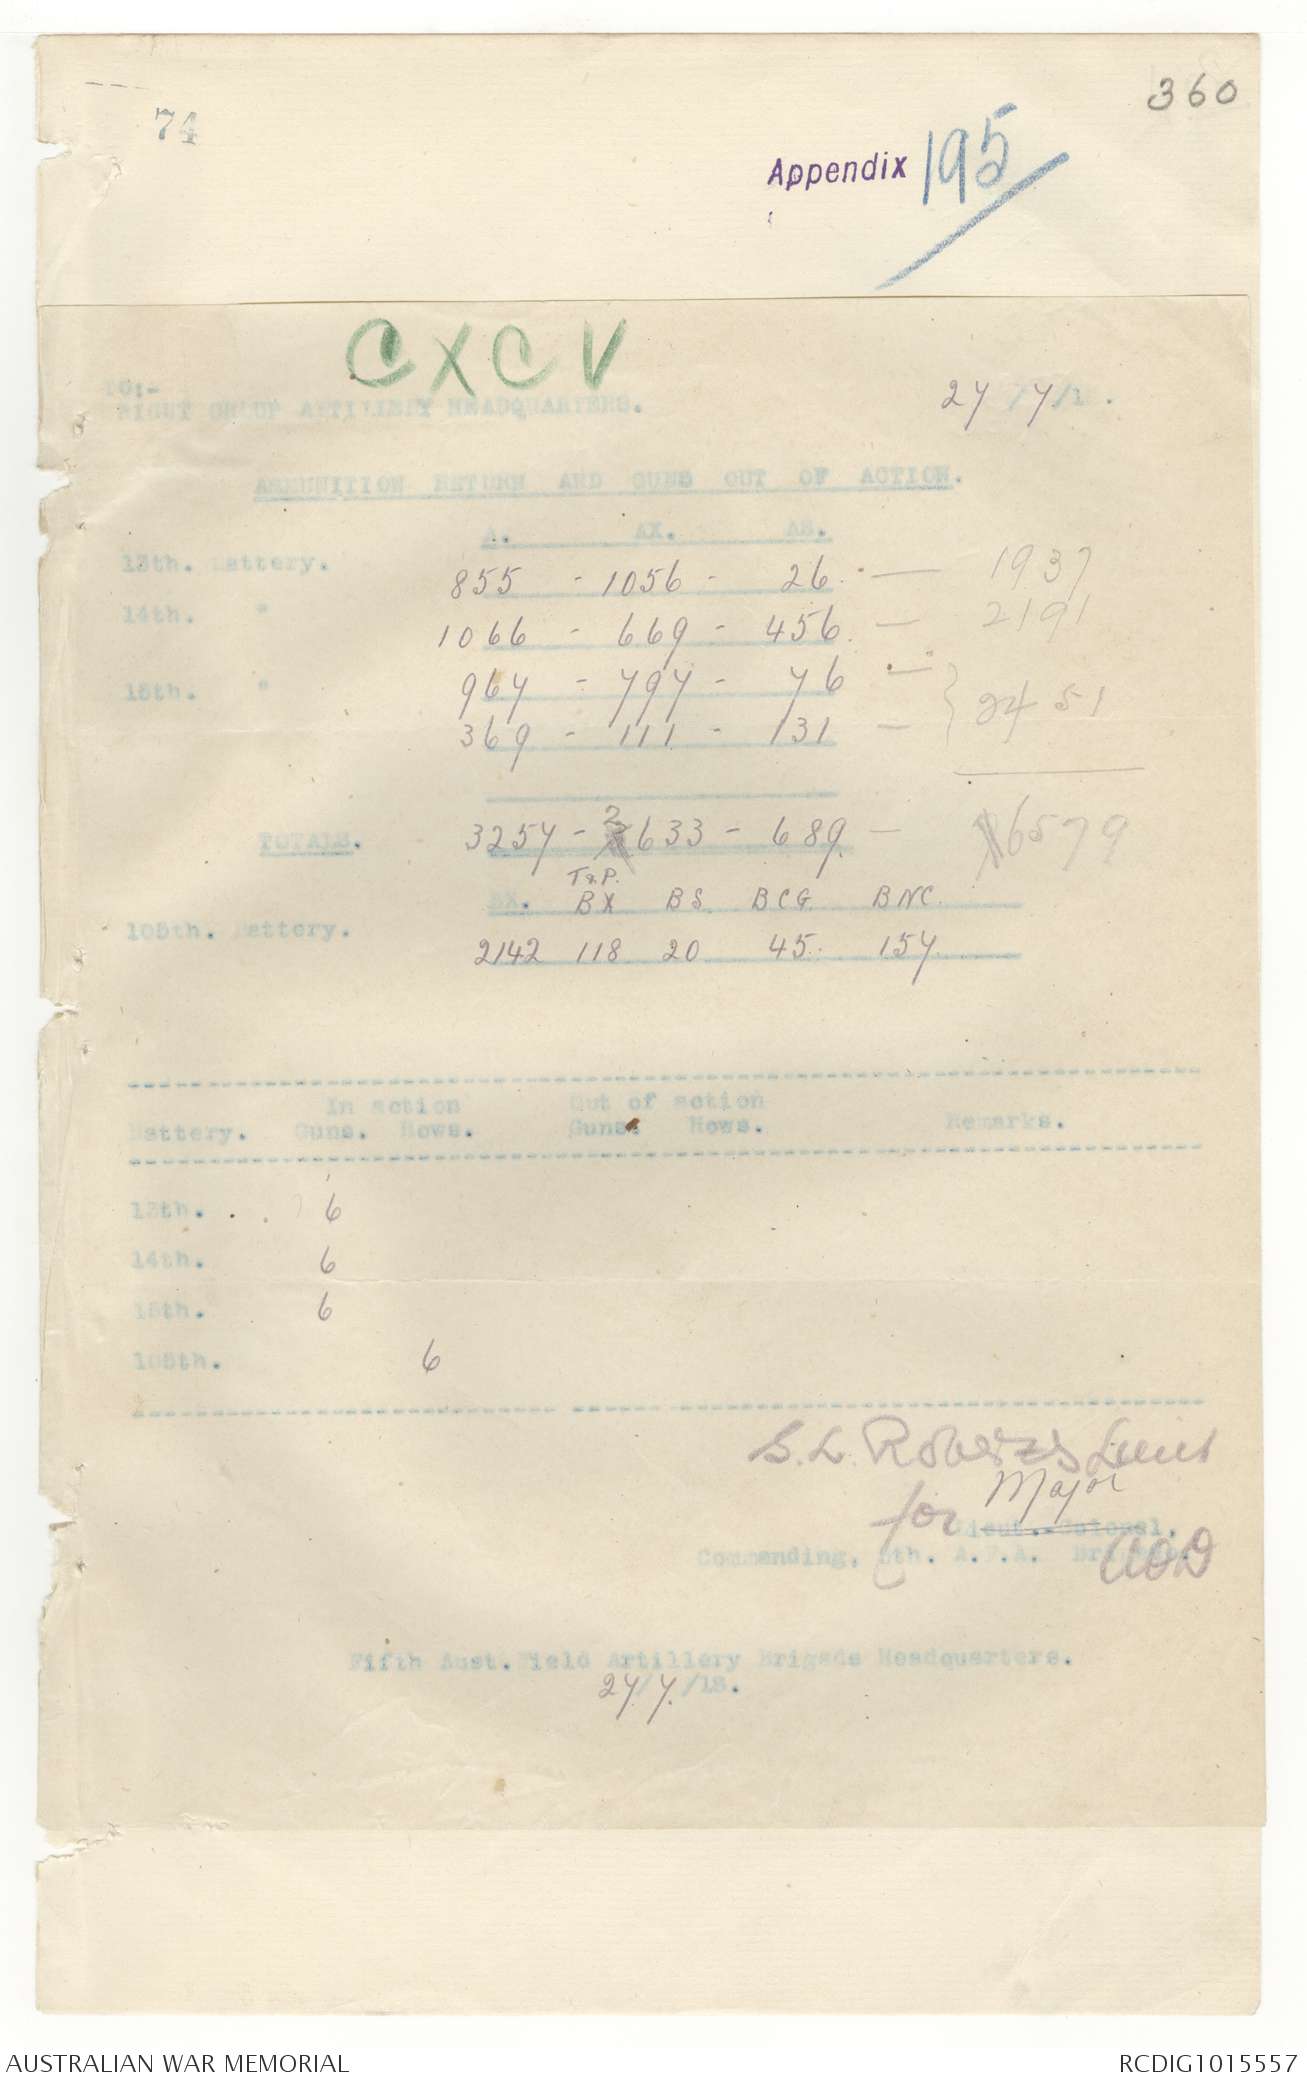 74
360
Appendix 195
CXCV
TO:-
RIGHT GROUP ARTILLERY HEADQUARTERS.
27/7/18.
AMMUNITION RETURN AND GUNS OUT OF ACTION.
A. AX. AS.
13th. Battery. 855 - 1056 - 26. - 1937
14th. " 1066 - 669 - 456. - 2191
15th. " 967 - 797 - 76 -
369 - 111 - 131 - } 2451
TOTALS. 3257 - 2633 - 689. - 6579
BX. T.P. BX BS. BCG. BNC.
105th. Battery. 2142 118 20 45. 157.
In action Out of action
Battery. Guns. Hows. Guns. Hows. Remarks.
13th. 6
14th. 6
15th. 6
105th. 6
G. L. Roberts Lieut
for Major
Lieut.-Colonel.
Commanding, 5th. A.F.A. Brigade.
Fifth Aust. Field Artillery Brigade Headquarters.
27/7/18.
AUSTRALIAN WAR MEMORIAL
RCDIG1015557